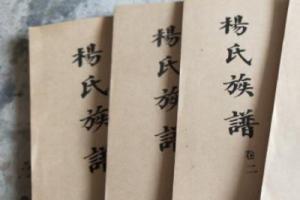 楊氏族譜
楊氏族譜
楊氏族譜
卷二